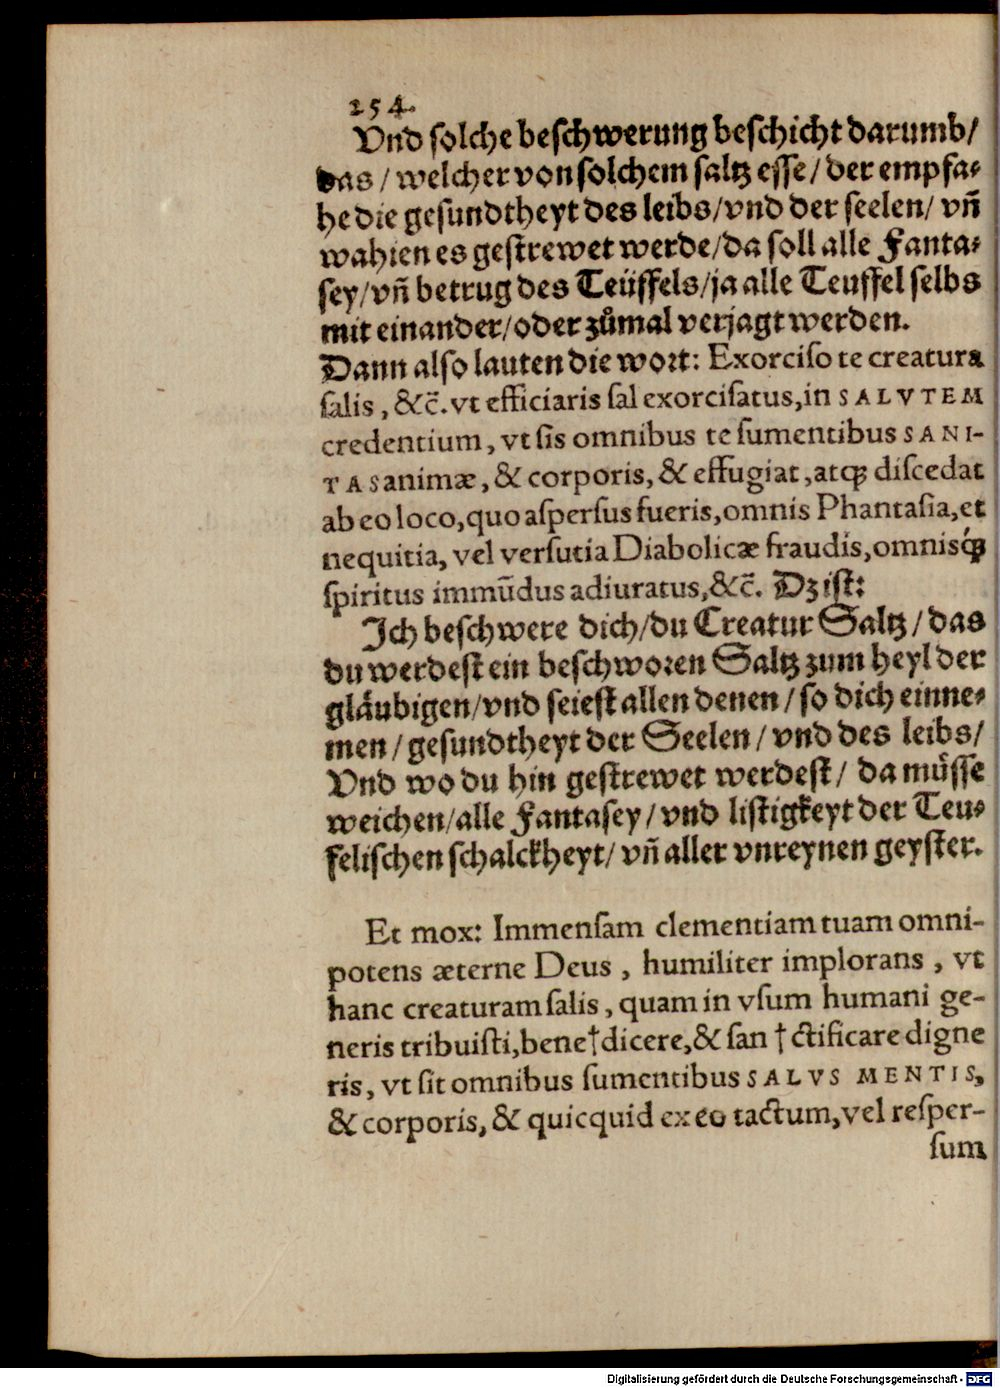 254.
Vnd ſolche beſchwerung beſchicht darumb/
das / welcher von ſolchem ſaltz eſſe / der empfa⸗
he die geſundtheyt des leibs/vnd der ſeelen/ vñ
wahien es geſtrewet werde/da ſoll alle Fanta⸗
ſey/vñ betrug des Teüffels/ja alle Teuffel ſelbs
mit einander/oder zůmal verjagt werden.
Dann alſo lauten die wort: Exorciſo te creatura
ſalis, &c̃. vt efficiaris ſal exorciſatus,in SALVTEM
credentium, vt ſis omnibus te ſumentibus SANI-
TAS animæ, & corporis, & effugiat,atqꝫ diſcedat
ab eo loco,quo aſperſus fueris,omnis Phantaſia,et
nequitia, vel verſutia Diabolicæ fraudis,omnisqꝫ
ſpiritus immũdus adiuratus,&c̃. Dz iſt:
Ich beſchwere dich/du Creatur Saltz / das
du werdeſt ein beſchworen Saltz zum heyl der
glåubigen/vnd ſeieſt allen denen / ſo dich einne⸗
men / geſundtheyt der Seelen / vnd des leibs/
Vnd wo du hin geſtrewet werdeſt/ da můſſe
weichen/alle Fantaſey / vnd liſtigkeyt der Teu⸗
feliſchen ſchalckheyt/ vñ aller vnreynen geyſter.
Et mox: Immenſam clementiam tuam omni-
potens æterne Deus , humiliter implorans , vt
hanc creaturam ſalis , quam in vſum humani ge-
neris tribuiſti,bene†dicere,& ſan † ctificare digne
ris, vt ſit omnibus ſumentibus SALVS MENTIS,
& corporis, & quicquid ex eo tactum,vel reſper-
ſum
Digitalisierung gefördert durch die Deutsche Forschungsgemeinschaft - DFG